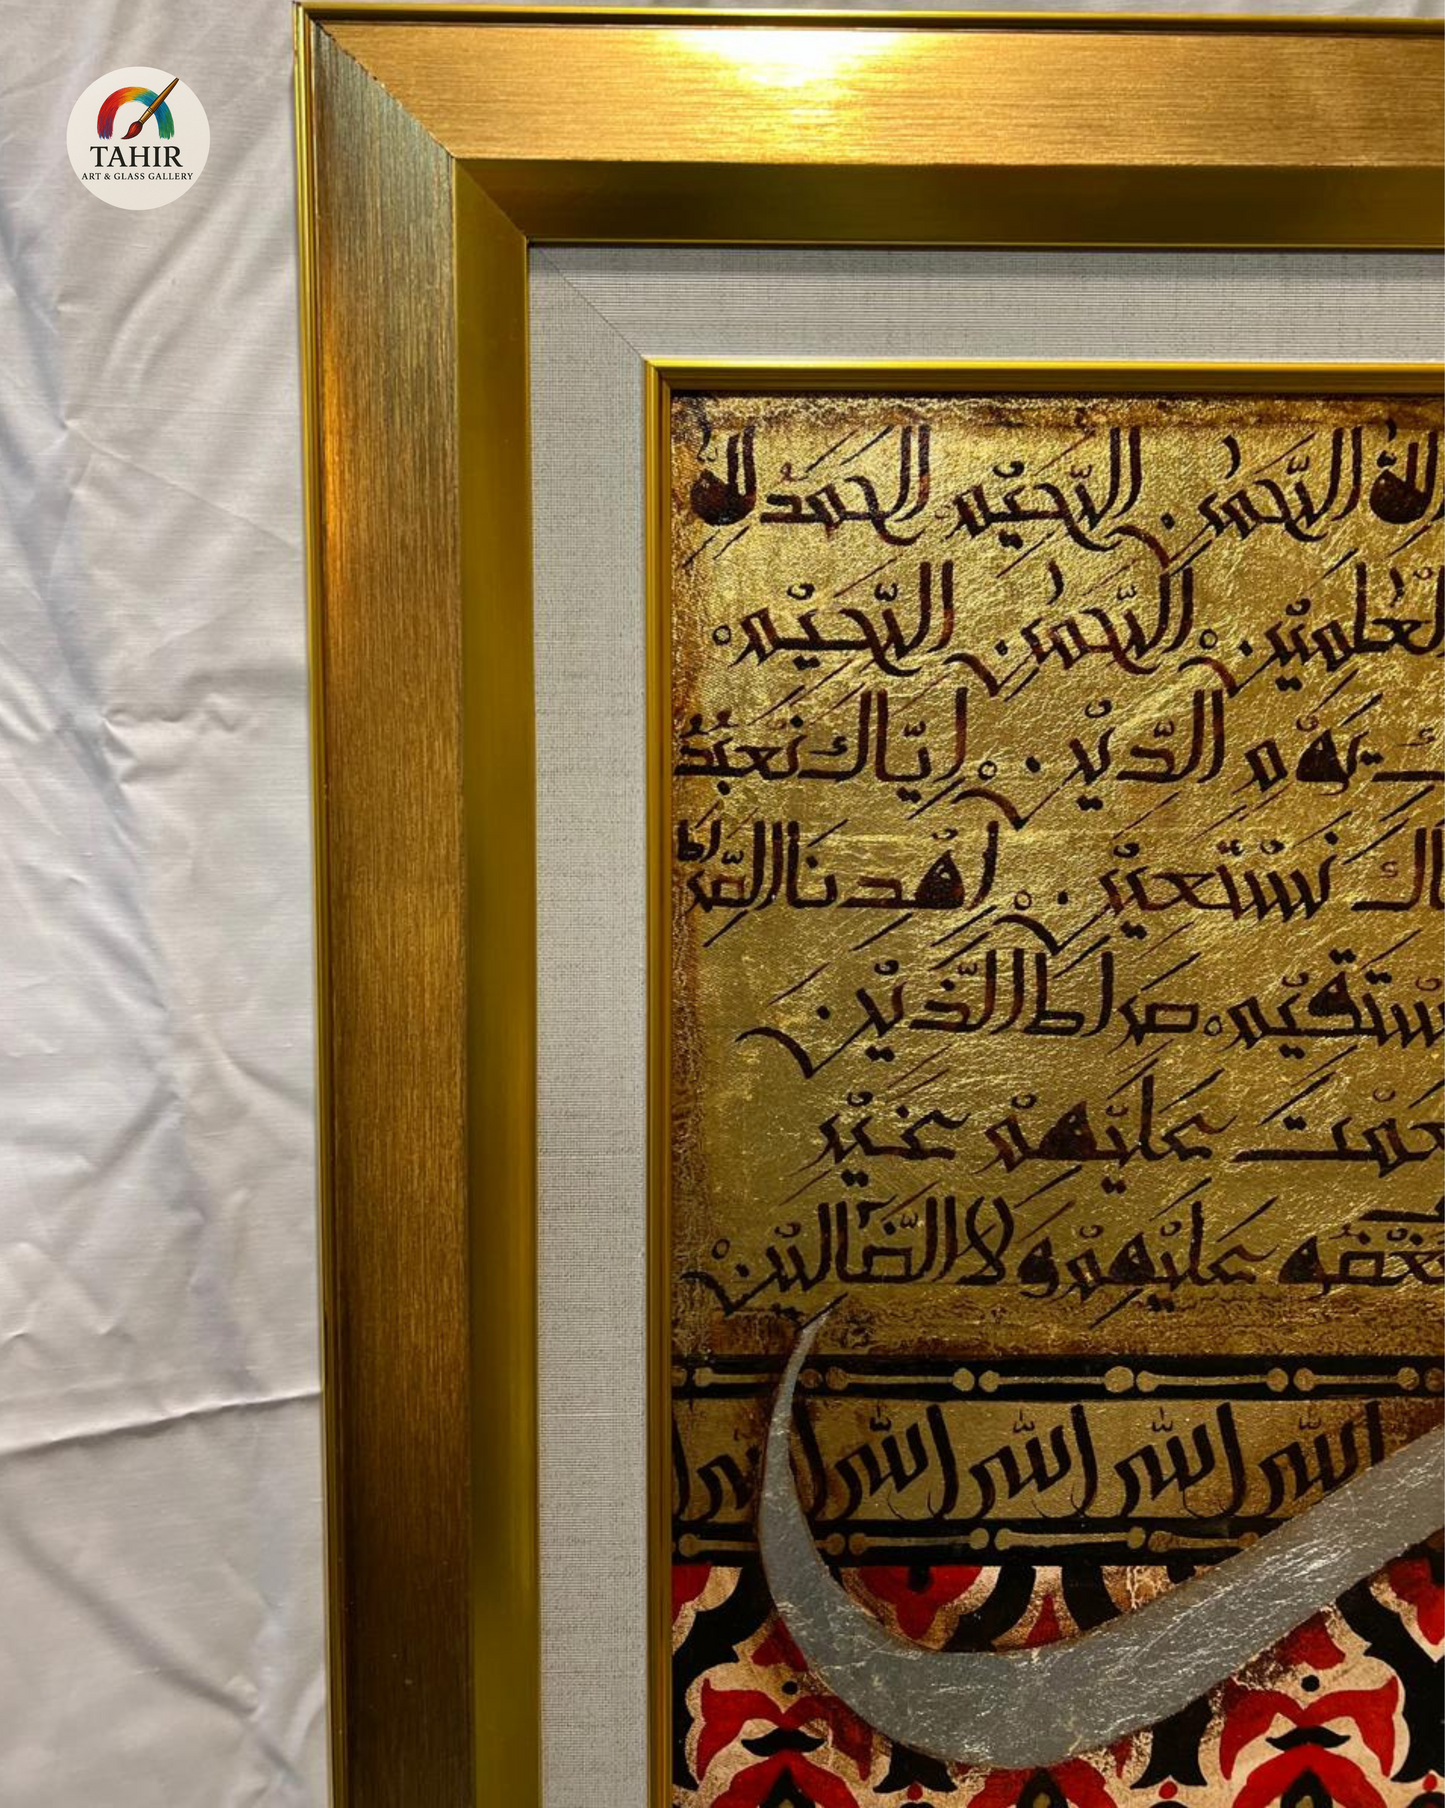 TAHIR
ART & GLASS GALLERY
الله الرَّحمٰن الرَّحيْم الحمدُ لله
العٰلميْن الرَّحمٰن الرَّحيْم
يوْم الدّيْن إيّاك نعْبُدُ
نسْتعيْن اهْدنا الصّراط
ستقيْم صراط الّذيْن
عمْت عليْهمْ غيْر
عليْهمْ ولا الضّاليْن
الله الله الله الله